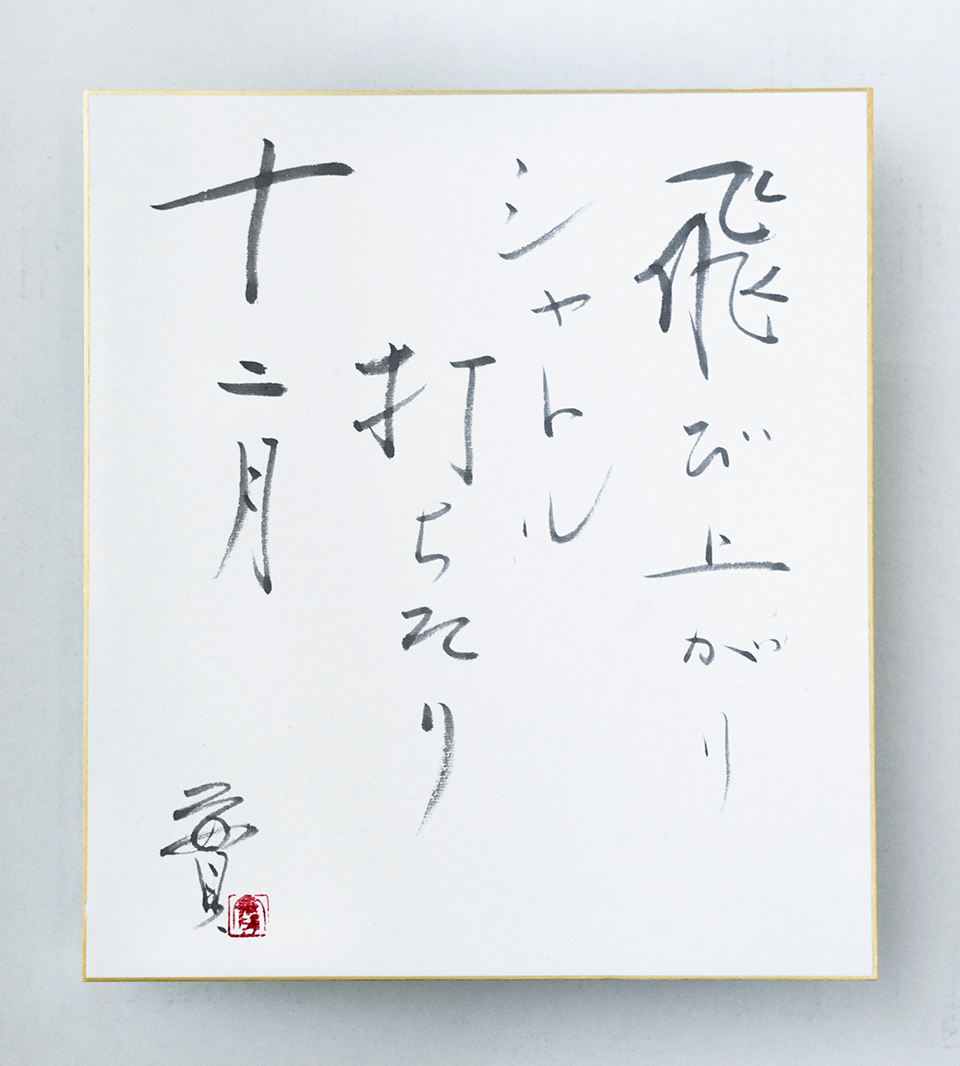 飛び上がり
シャトル
打ちたり
十二月